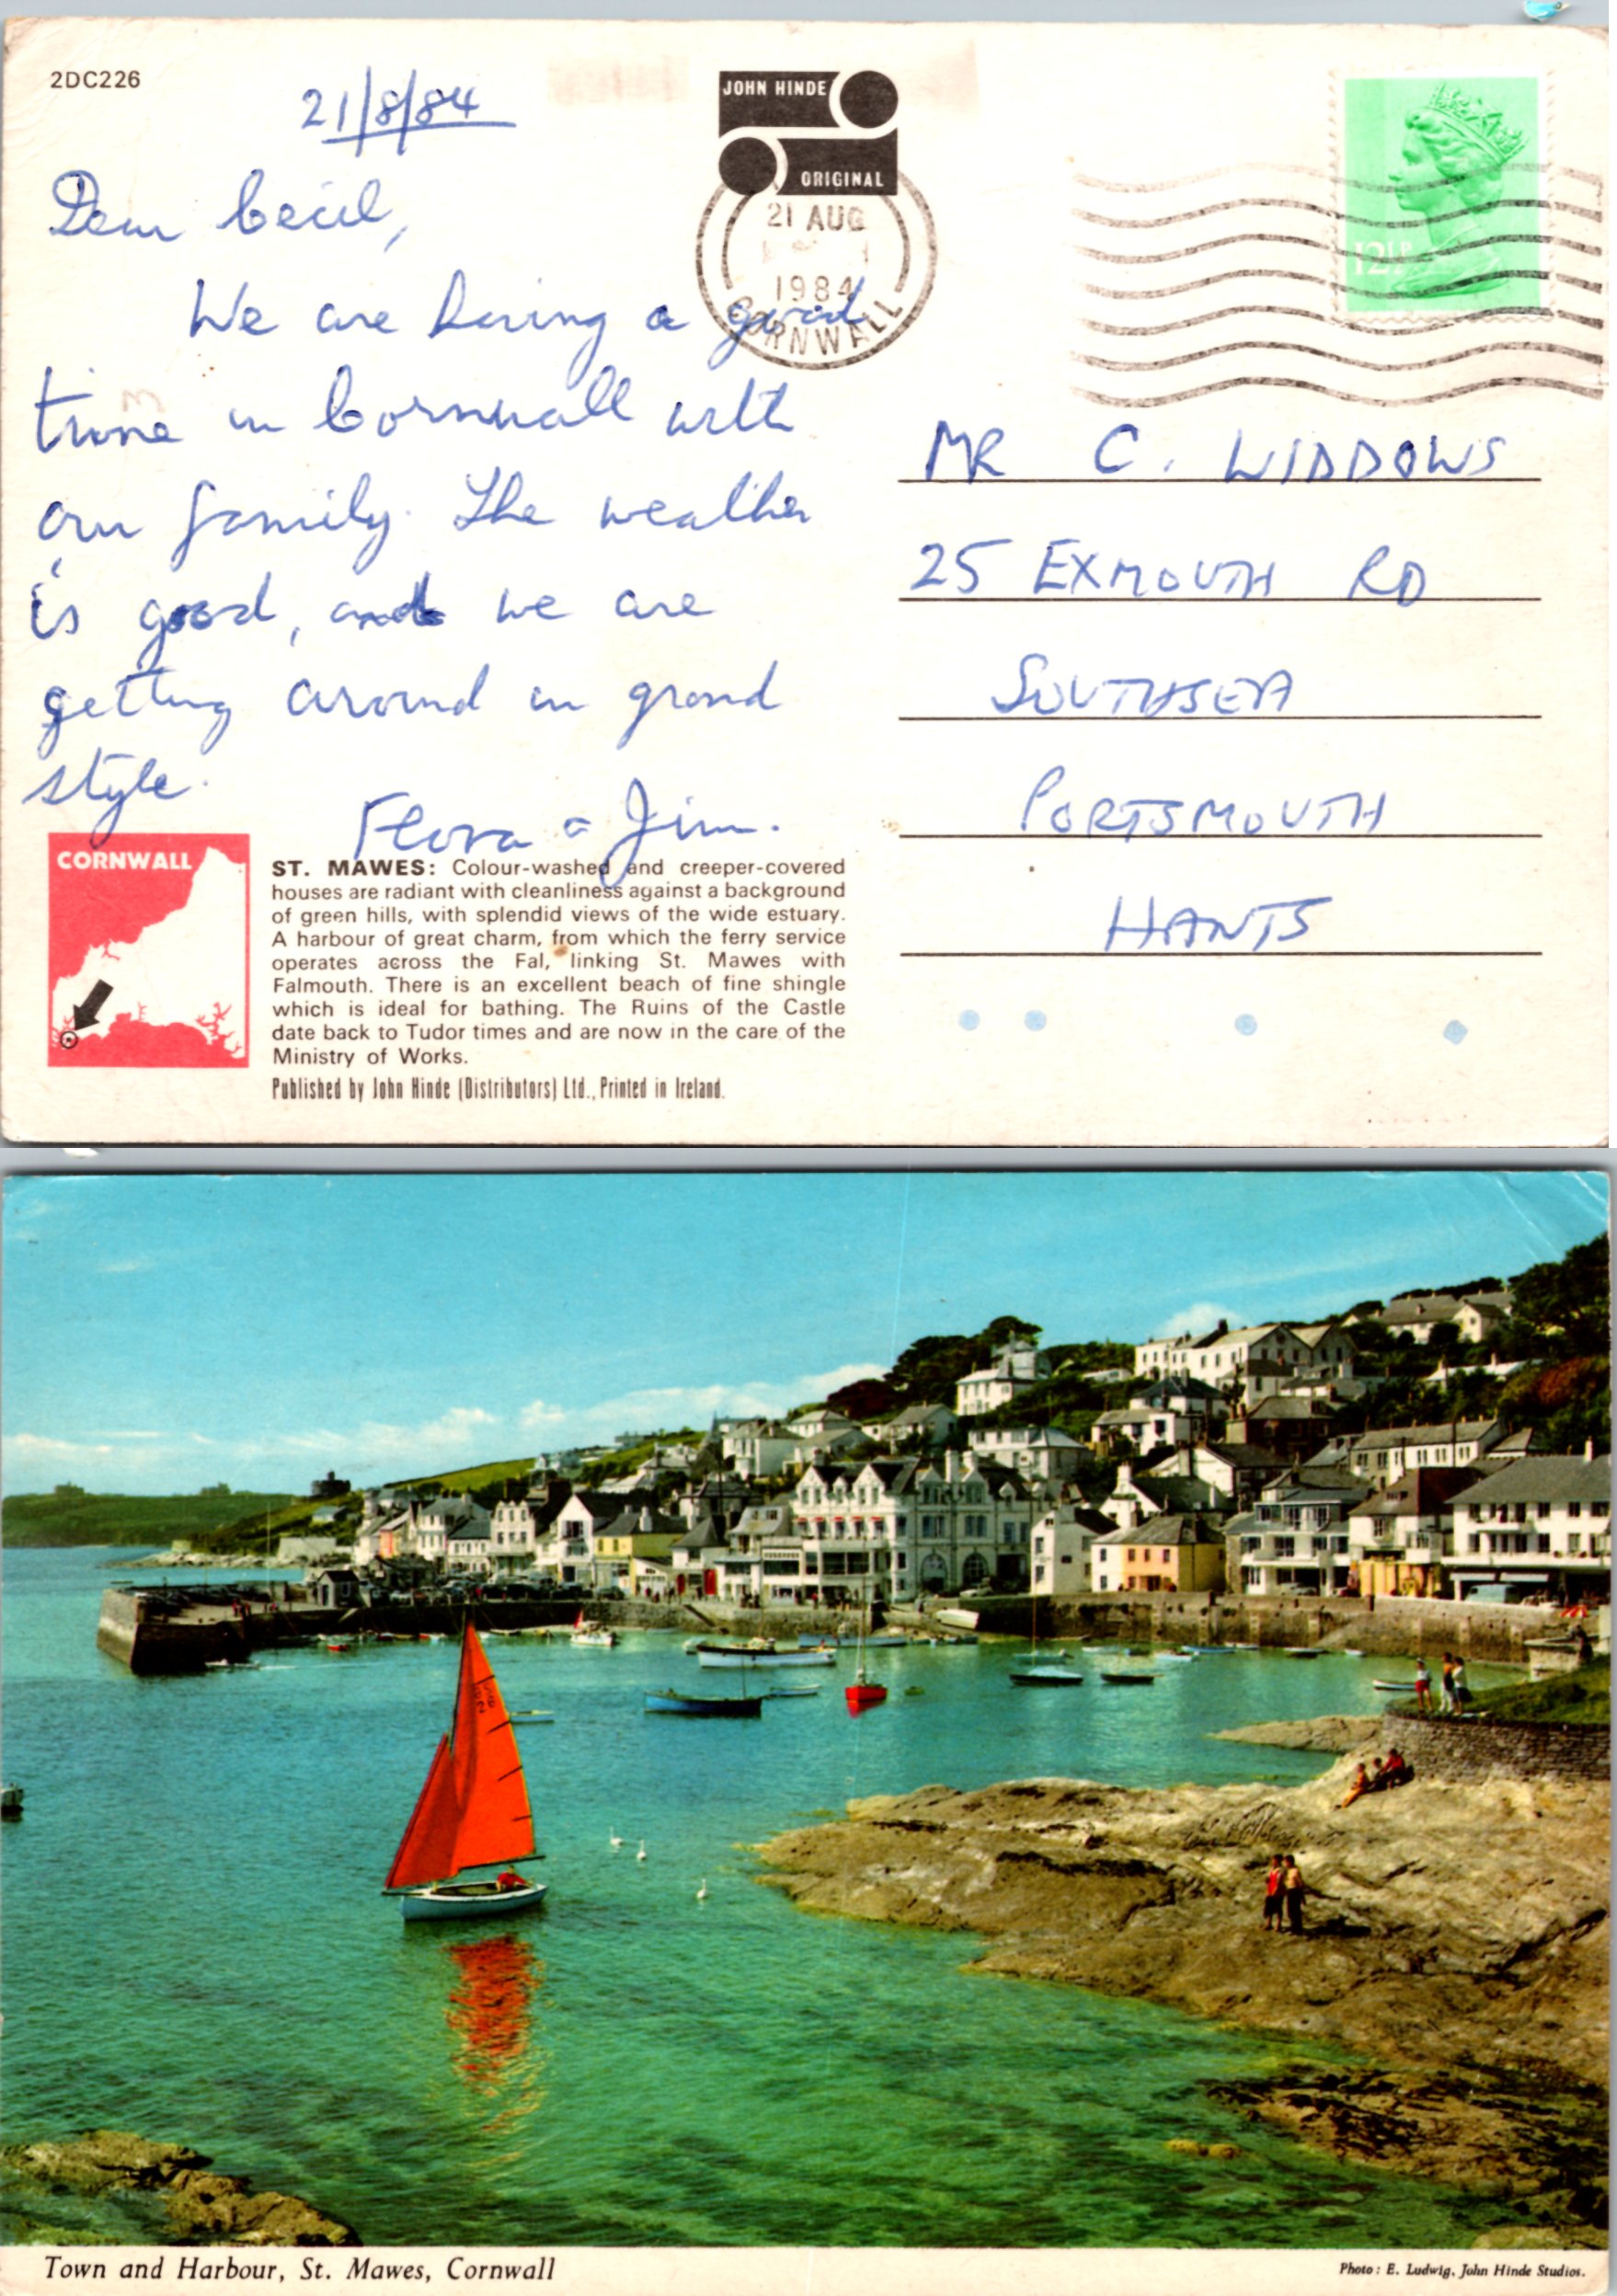 2DC226
21/8/84
JOHN HINDE
ORIGINAL
21 AUG
1984
CORNWALL
12½P
Dear Cecil,
We are having a good
time in Cornwall with
our family. The weather
is good, and we are
getting around in grand
style.
Flora & Jim.
MR C. WIDDOWS
25 EXMOUTH RD
SOUTHSEA
PORTSMOUTH
HANTS
CORNWALL
ST. MAWES: Colour-washed and creeper-covered
houses are radiant with cleanliness against a background
of green hills, with splendid views of the wide estuary.
A harbour of great charm, from which the ferry service
operates across the Fal, linking St. Mawes with
Falmouth. There is an excellent beach of fine shingle
which is ideal for bathing. The Ruins of the Castle
date back to Tudor times and are now in the care of the
Ministry of Works.
Published by John Hinde (Distributors) Ltd., Printed in Ireland.
Town and Harbour, St. Mawes, Cornwall
Photo: E. Ludwig, John Hinde Studios.